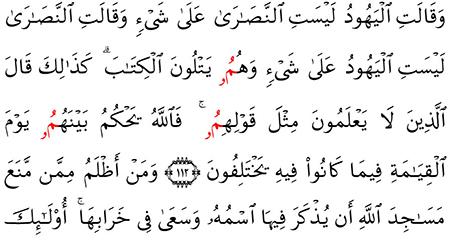 وَقَالَتِ ٱلۡيَهُودُ لَيۡسَتِ ٱلنَّصَٰرَىٰ عَلَىٰ شَيۡءٖ وَقَالَتِ ٱلنَّصَٰرَىٰ
لَيۡسَتِ ٱلۡيَهُودُ عَلَىٰ شَيۡءٖ وَهُمُۥ يَتۡلُونَ ٱلۡكِتَٰبَۗ كَذَٰلِكَ قَالَ
ٱلَّذِينَ لَا يَعۡلَمُونَ مِثۡلَ قَوۡلِهِمُۥۚ فَٱللَّهُ يَحۡكُمُ بَيۡنَهُمُۥ يَوۡمَ
ٱلۡقِيَٰمَةِ فِيمَا كَانُواْ فِيهِ يَخۡتَلِفُونَ ١١٢ وَمَنۡ أَظۡلَمُ مِمَّن مَّنَعَ
مَسَٰجِدَ ٱللَّهِ أَن يُذۡكَرَ فِيهَا ٱسۡمُهُۥ وَسَعَىٰ فِي خَرَابِهَآۚ أُوْلَٰٓئِكَ